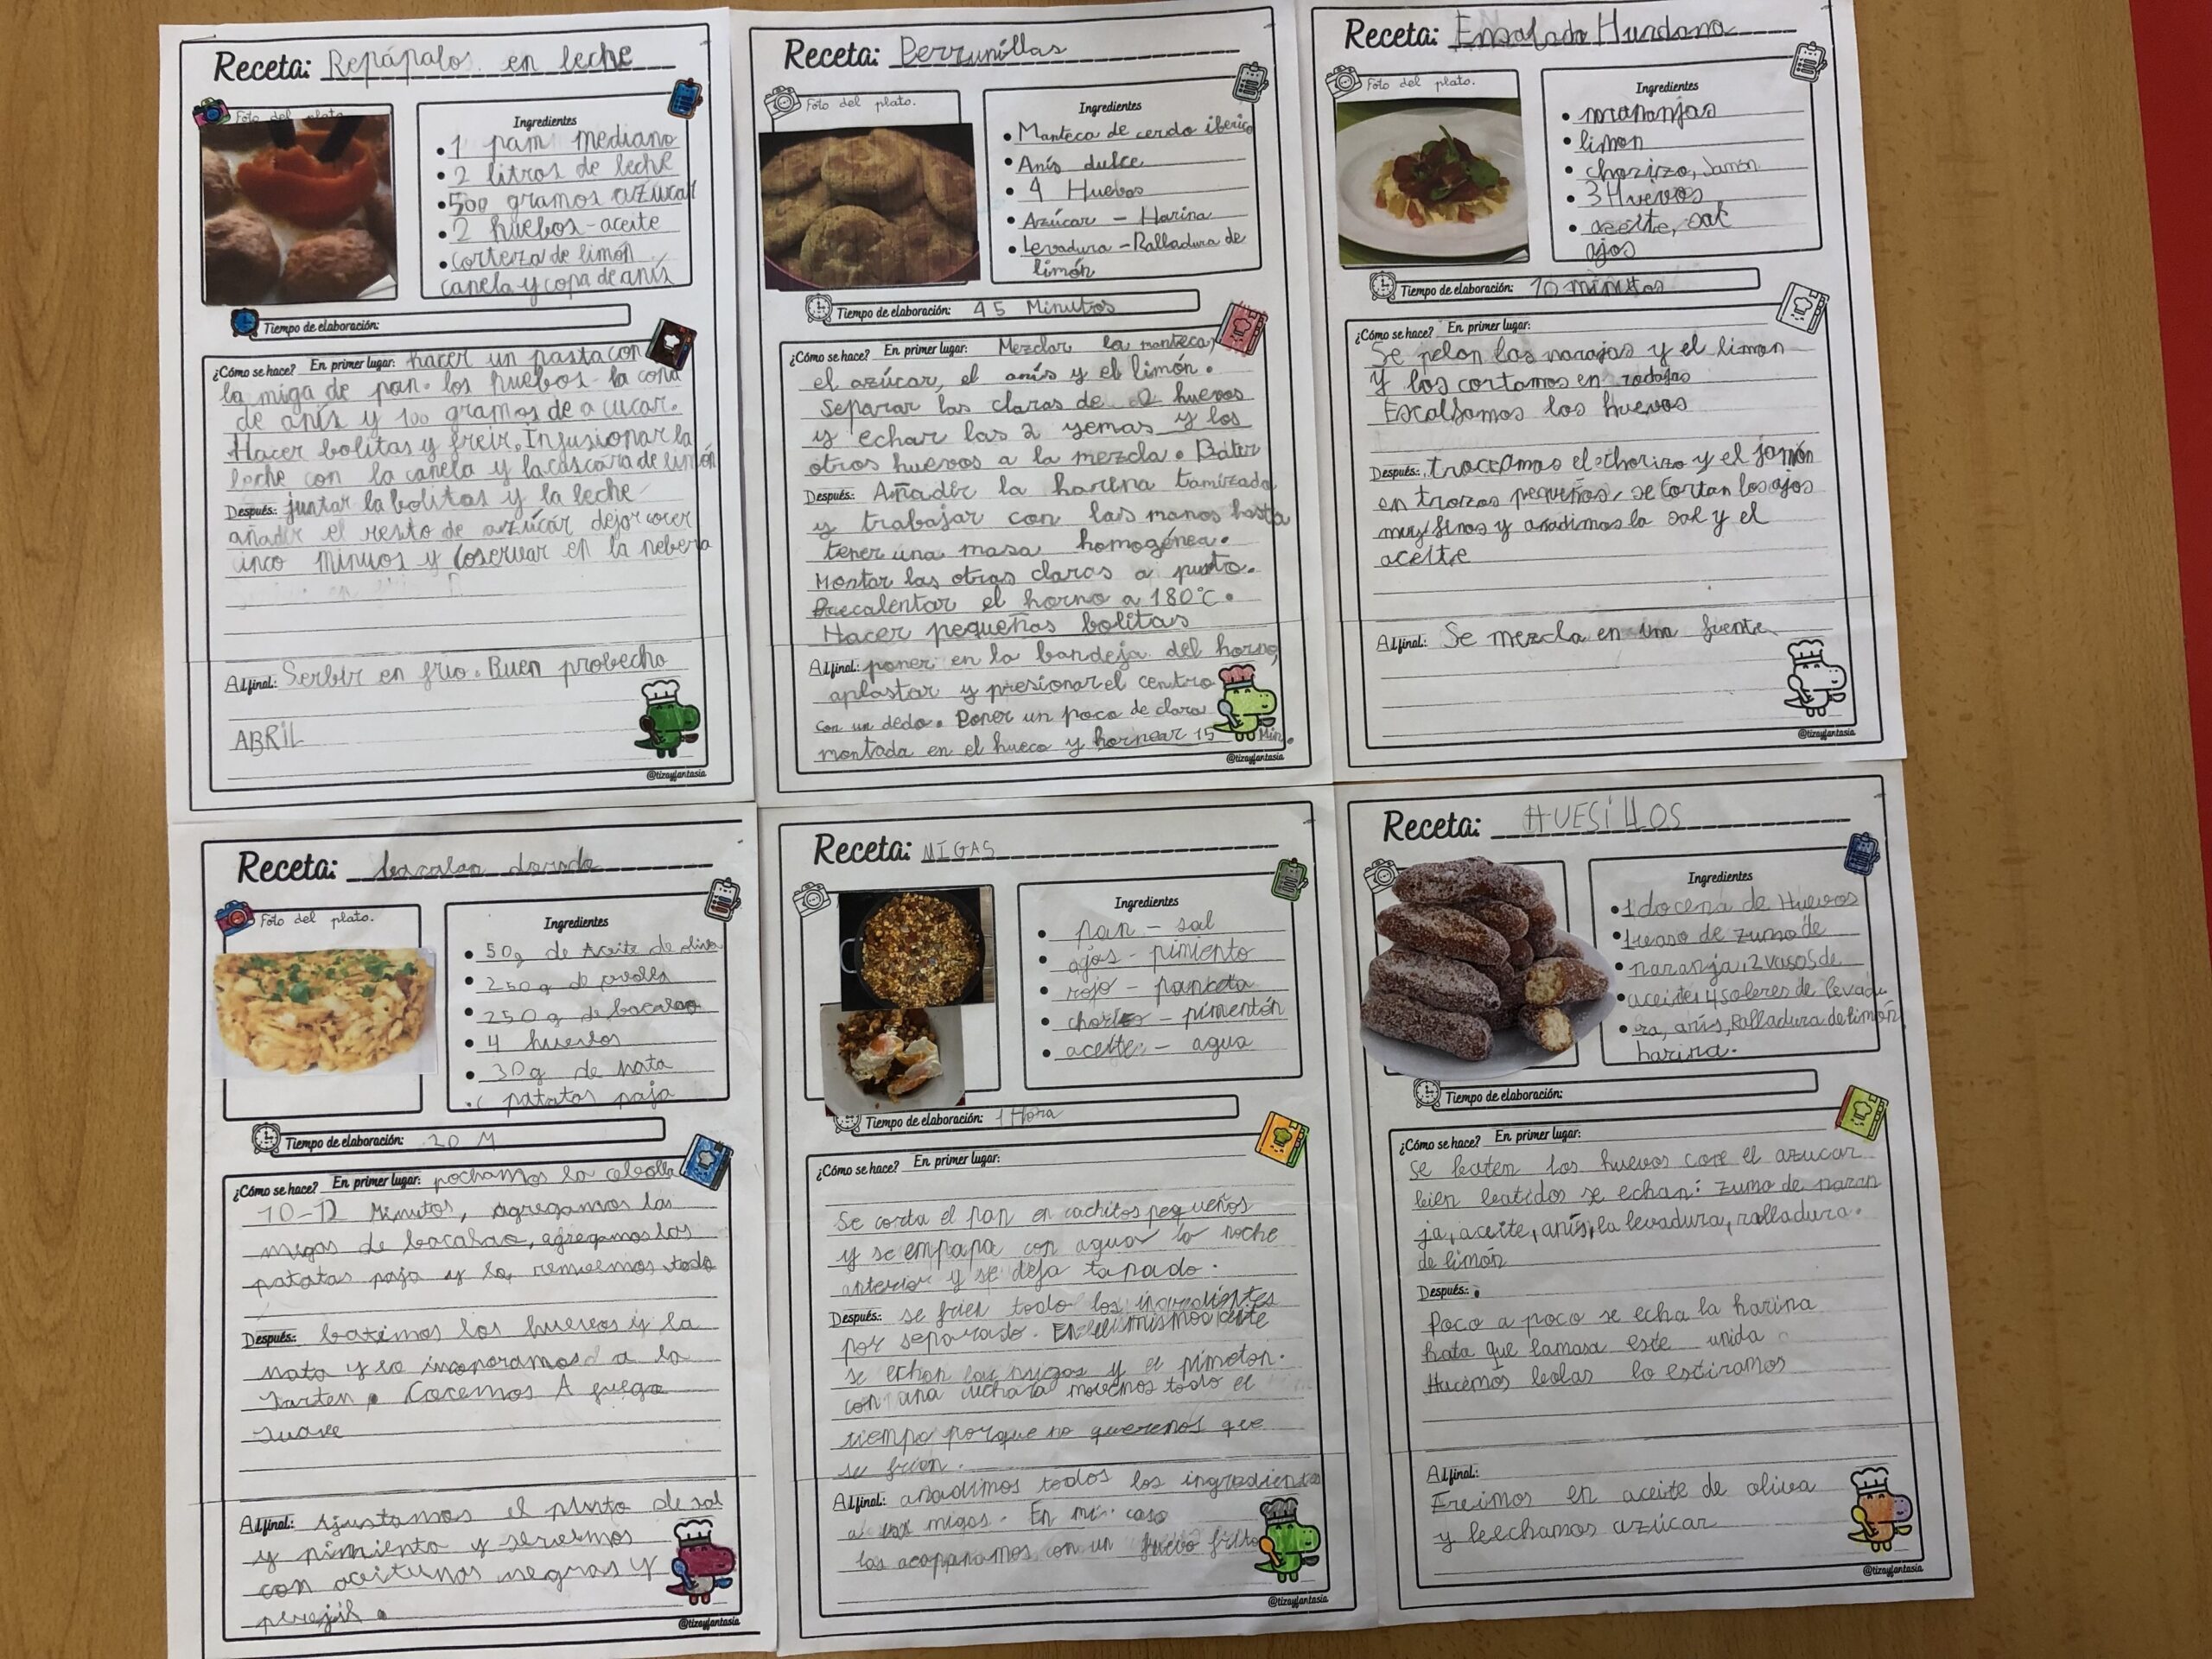 Receta: Repápalos en leche
Foto del plato
Ingredientes
• 1 pam mediano
• 2 litros de leche
• 500 gramos azúcar
• 2 huebos - aceite
• corteza de limón
canela y copa de anís
Tiempo de elaboración:
¿Cómo se hace? En primer lugar: hacer un pasta con
la miga de pan. los huebos - la copa
de anís y 100 gramos de a cucar.
Hacer bolitas y freir. Infusionar la
leche con la canela y la cascara de limón
Después: juntar la bolitas y la leche
añadir el resto de azúcar dejar cocer
cinco minuos y coservar en la nebera
Al final: Serbir en frio. Buen probecho
ABRIL
@tizayfantasia
Receta: Perrunillas
Foto del plato.
Ingredientes
• Manteca de cerdo ibérico
• Anís dulce
• 4 Huevos
• Azúcar - Harina
• Levadura - Ralladura de
limón
Tiempo de elaboración: 45 Minutos
¿Cómo se hace? En primer lugar: Mezclar la manteca,
el azúcar, el anís y el limón.
Separar las claras de 2 huevos
y echar las 2 yemas y los
otros huevos a la mezcla. Batir
Después: Añadir la harina tamizada
y trabajar con las manos hasta
tener una masa homogénea.
Montar las otras claras a punto.
Precalentar el horno a 180°C.
Hacer pequeñas bolitas
Al final: poner en la bandeja del horno,
aplastar y presionar el centro
con un dedo. Poner un poco de clara
montada en el hueco y hornear 15 Min.
@tizayfantasia
Receta: Ensalada Hurdana
Foto del plato.
Ingredientes
• naranjas
• limon
• chorizo, Jamón
• 3 Huevos
• aceite, sal
ajos
Tiempo de elaboración: 10 minutos
¿Cómo se hace? En primer lugar:
Se pelan las narajas y el limon
Y los cortamos en rodajas
Escalfamos los huevos
Después: troceamos el chorizo y el jamón
en trozos pequeños, se cortan los ajos
muy finos y añadimos la sal y el
aceite
Al final: Se mezcla en una fuente
@tizayfantasia
Receta: bacalao dorado
Foto del plato.
Ingredientes
• 50g de Aceite de oliva
• 250g de
• 250 g de bacalao
• 4 huevos
• 30g de nata
• patatas paja
Tiempo de elaboración: 20 M
¿Cómo se hace? En primer lugar: pochamos la cebolla
10-12 Minutos, agregamos las
migas de bacalao, agregamos las
patatas paja y lo removemos todo
Después: batimos los huevos y la
nata y lo incoporamos a la
sarten. Cocemos A fuego
suave
Al final: Ajustamos el punto de sal
y pimienta y servimos
con aceitunas negras y
perejil.
@tizayfantasia
Receta: MIGAS
Ingredientes
• pan - sal
• ajos - pimiento
• rojo - panceta
• chorizo - pimentón
• aceite - agua
Tiempo de elaboración: 1 Hora
¿Cómo se hace? En primer lugar:
Se corta el pan en cachitos pequeños
y se empapa con agua la noche
anterior y se deja tapado.
Después: se frien todo los ingredientes
por separado. En el mismo aceite
se echan las migas y el pimeton.
con una cuchara movemos todo el
tiempo porque no queremos que
se frian.
Al final: añadimos todos los ingredientes
a las migas. En mi caso
las acopañamos con un huevo frito
@tizayfantasia
Receta: HUESILLOS
Ingredientes
• 1 docena de Huevos
• 1 vaso de zumo de
• naranja, 2 vasos de
• aceite, 4 soberes de levadu
• ra, anís, Ralladura de limón,
harina.
Tiempo de elaboración:
¿Cómo se hace? En primer lugar:
Se baten los huevos con el azucar
bien batidos se echan: zumo de naran
ja, aceite, anís, la levadura, ralladura.
de limón
Después:
Poco a poco se echa la harina
hata que lamasa este unida
Hacemos bolas lo estiramos
Al final:
Freimos en aceite de oliva
y leechamos azúcar
@tizayfantasia